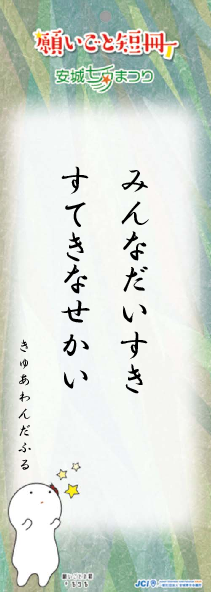 願いごと短冊
安城七夕まつり
みんなだいすき
すてきなせかい
きゅあわんだふる
JCI